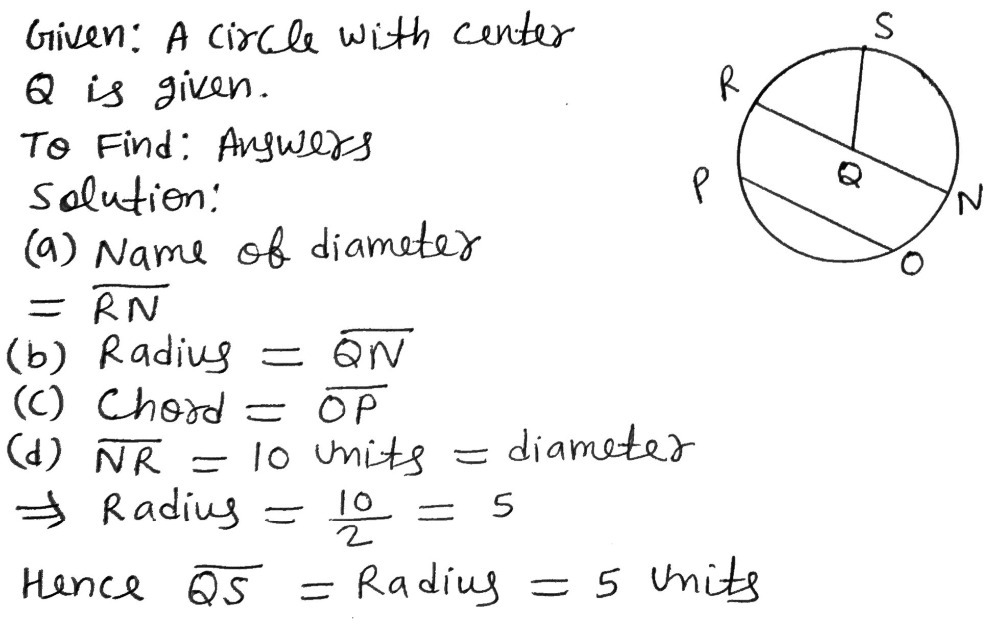 Given: A Circle with center
Q is given.
To Find: Answers
Solution:
(a) Name of diameter
= \overline{RN}
(b) Radius = \overline{QN}
(C) Chord = \overline{OP}
(d) \overline{NR} = 10 Units = diameter
⇒ Radius = \frac{10}{2} = 5
Hence \overline{QS} = Radius = 5 Units
S
R
Q
P
N
O